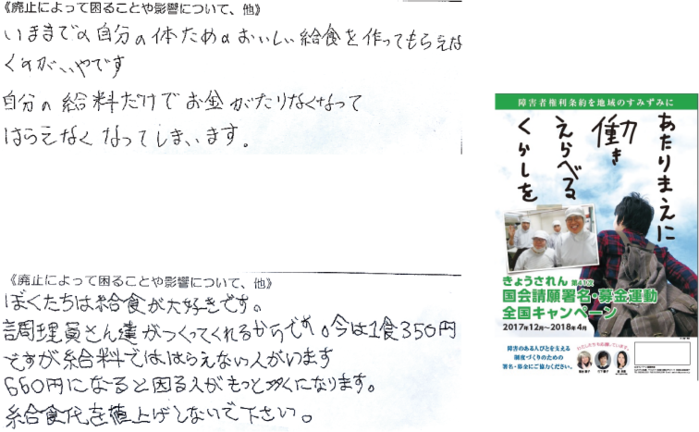 《廃止によって困ることや影響について、他》
いままでの自分の体ためのおいしい給食を作ってもらえな
くのがいやです
自分の給料だけでお金がたりなくなって
はらえなくなってしまいます。
《廃止によって困ることや影響について、他》
ぼくたちは給食が大好きです。
調理員さん達がつくってくれるからです。今は1食350円
ですが給料でははらえない人がいます
660円になると困る人がもっと多くなります。
給食代を値上げしないで下さい。
障害者権利条約を地域のすみずみに
あたりまえに
働き
えらべる
くらしを
きょうされん
国会請願署名・募金運動
全国キャンペーン
2017年12月〜2018年4月
障害のある人びとを支える
制度づくりのための
署名・募金にご協力ください。